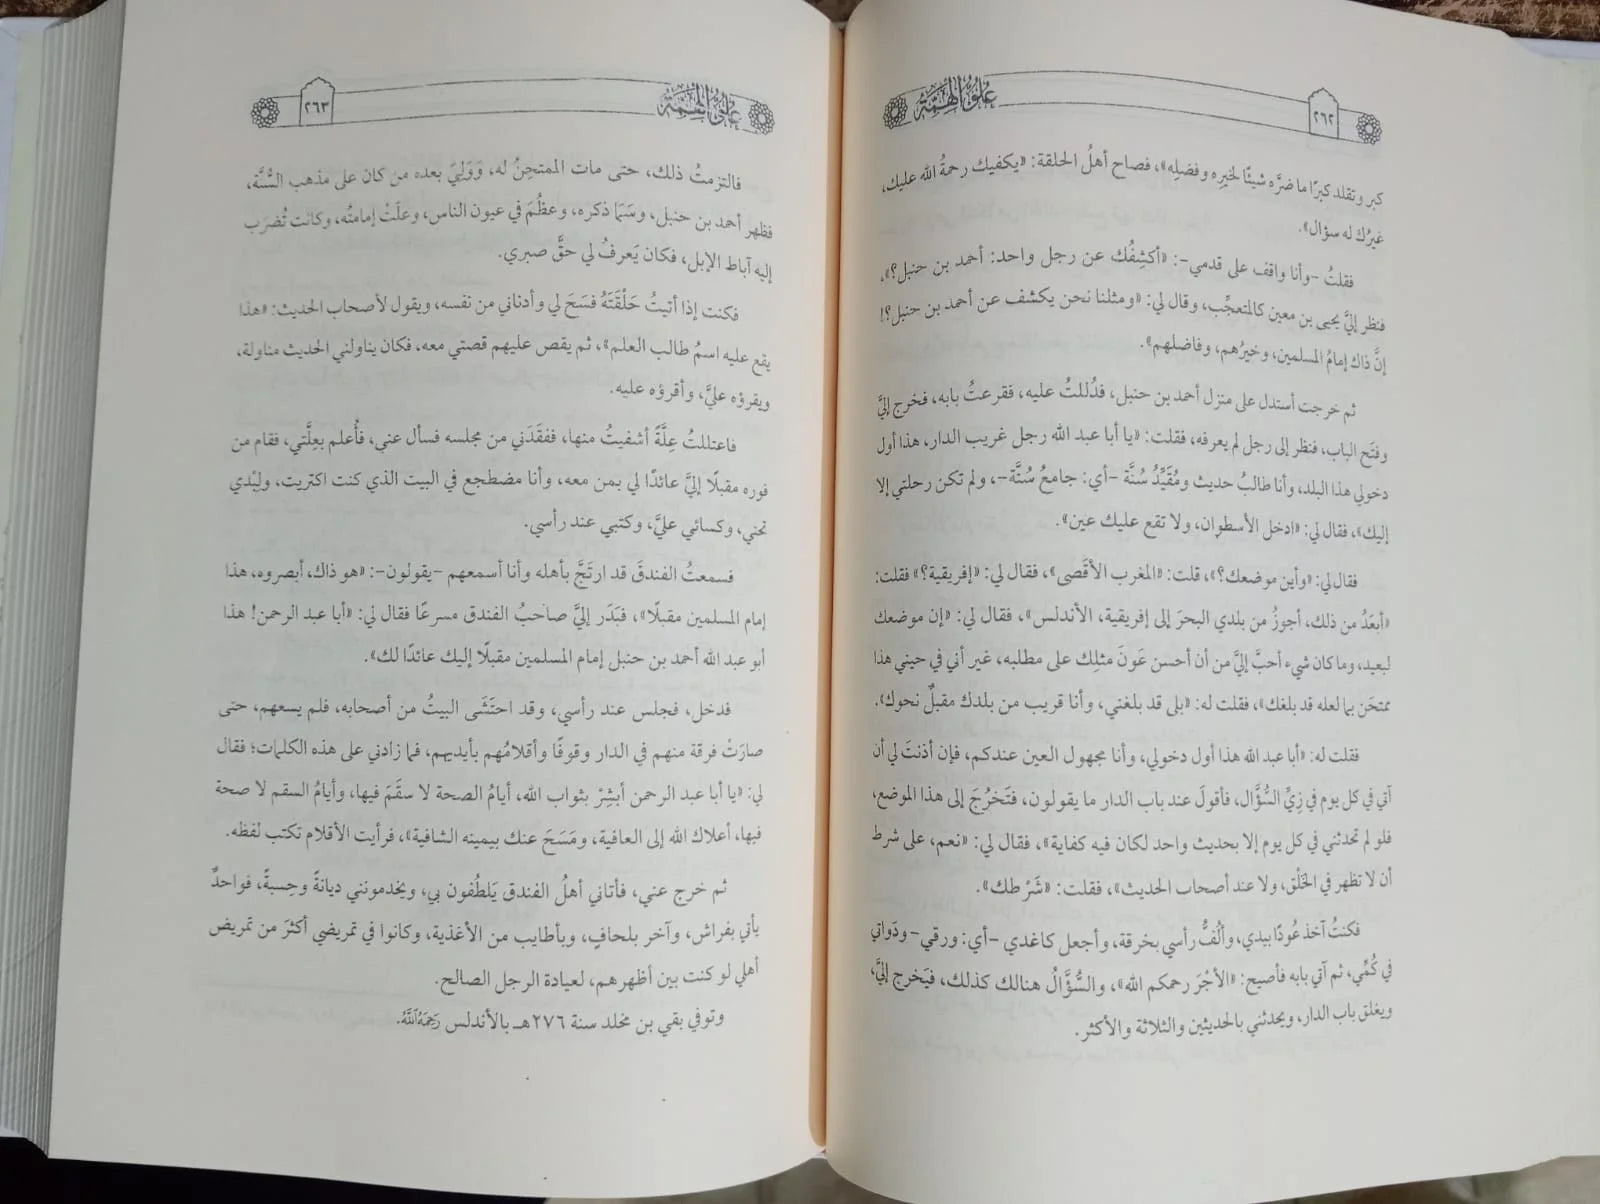 علو الهمة
٢٦٢
كبر وتقلد كبرًا ما ضرَّه شيئًا لخيرِه وفضلِه»، فصاح أهلُ الحلقة: «يكفيك رحمةُ الله عليك،
غيرُك له سؤال».
فقلتُ -وأنا واقف على قدمي-: «أكشِفُك عن رجل واحد: أحمد بن حنبل؟»،
فنظر إليَّ يحيى بن معين كالمتعجِّب، وقال لي: «ومثلنا نحن يكشف عن أحمد بن حنبل؟!
إنَّ ذاك إمامُ المسلمين، وخيرُهم، وفاضلهم».
ثم خرجت أستدل على منزل أحمد بن حنبل، فدُللتُ عليه، فقرعتُ بابه، فخرج إليَّ
وفتَح الباب، فنظر إلى رجل لم يعرفه، فقلت: «يا أبا عبد الله رجل غريب الدار، هذا أول
دخولي هذا البلد، وأنا طالبُ حديث ومُقَيِّدُ سُنَّة -أي: جامعُ سُنَّة-، ولم تكن رحلتي إلا
إليك»، فقال لي: «ادخل الأسطوان، ولا تقع عليك عين».
فقال لي: «وأين موضعك؟»، قلت: «المغرب الأقصى»، فقال لي: «إفريقية؟» فقلت:
«أبعَدُ من ذلك، أجوزُ من بلدي البحرَ إلى إفريقية، الأندلس»، فقال لي: «إن موضعك
لبعيد، وما كان شيء أحبَّ إليَّ من أن أحسن عَونَ مثلِك على مطلبه، غير أني في حيني هذا
ممتحَن بما لعله قد بلغك»، فقلت له: «بلى قد بلغني، وأنا قريب من بلدك مقبلٌ نحوك».
فقلت له: «أبا عبد الله هذا أول دخولي، وأنا مجهول العين عندكم، فإن أذنتَ لي أن
آتي في كل يوم في زِيِّ السُّؤَّال، فأقولَ عند باب الدار ما يقولون، فتَخرُجَ إلى هذا الموضع،
فلو لم تحدثني في كل يوم إلا بحديث واحد لكان فيه كفاية»، فقال لي: «نعم، على شرط
أن لا تظهر في الخَلْق، ولا عند أصحاب الحديث»، فقلت: «شَرْطك».
فكنتُ آخذ عُودًا بيدي، وألُفُّ رأسي بخرقة، وأجعل كاغدي -أي: ورقي- ودَواتي
في كُمِّي، ثم آتي بابه فأصيح: «الأجْرَ رحمكم الله»، والسُّؤَّالُ هنالك كذلك، فيَخرج إليَّ،
ويغلق باب الدار، ويحدثني بالحديثين والثلاثة والأكثر.
علو الهمة
٢٦٣
فالتزمتُ ذلك، حتى مات الممتحِنُ له، وَوَلِيَ بعده من كان على مذهب السُّنَّة،
فظهر أحمد بن حنبل، وسَمَا ذكره، وعظُمَ في عيون الناس، وعلَتْ إمامتُه، وكانت تُضرَب
إليه آباط الإبل، فكان يَعرفُ لي حقَّ صبري.
فكنت إذا أتيتُ حَلْقَتَهُ فسَحَ لي وأدناني من نفسه، ويقول لأصحاب الحديث: «هذا
يقع عليه اسمُ طالب العلم»، ثم يقص عليهم قصتي معه، فكان يناولني الحديث مناولة،
ويقرؤه عليَّ، وأقرؤه عليه.
فاعتللتُ عِلَّةً أشفيتُ منها، ففقَدَني من مجلسه فسأل عني، فأُعلم بعِلَّتي، فقام من
فوره مقبلًا إليَّ عائدًا لي بمن معه، وأنا مضطجع في البيت الذي كنت اكتريت، ولِبْدي
تحتي، وكسائي عليَّ، وكتبي عند رأسي.
فسمعتُ الفندقَ قد ارتَجَّ بأهله وأنا أسمعهم -يقولون-: «هو ذاك، أبصروه، هذا
إمام المسلمين مقبلًا»، فبَدَر إليَّ صاحبُ الفندق مسرعًا فقال لي: «أبا عبد الرحمن! هذا
أبو عبد الله أحمد بن حنبل إمام المسلمين مقبلًا إليك عائدًا لك».
فدخل، فجلس عند رأسي، وقد احتَشَى البيتُ من أصحابه، فلم يسعهم، حتى
صارَتْ فرقة منهم في الدار وقوفًا وأقلامُهم بأيديهم، فما زادني على هذه الكلمات؛ فقال
لي: «يا أبا عبد الرحمن أبشِرْ بثواب الله، أيامُ الصحة لا سقَمَ فيها، وأيامُ السقم لا صحة
فيها، أعلاك الله إلى العافية، ومَسَحَ عنك بيمينه الشافية»، فرأيت الأقلام تكتب لفظه.
ثم خرج عني، فأتاني أهلُ الفندق يَلطُفون بي، ويخدمونني ديانةً وحِسبةً، فواحدٌ
يأتي بفراش، وآخر بلحافٍ، وبأطايب من الأغذية، وكانوا في تمريضي أكثرَ من تمريض
أهلي لو كنت بين أظهرهم، لعيادة الرجل الصالح.
وتوفي بقي بن مخلد سنة ٢٧٦هـ بالأندلس رَحِمَهُ ٱللَّهُ.